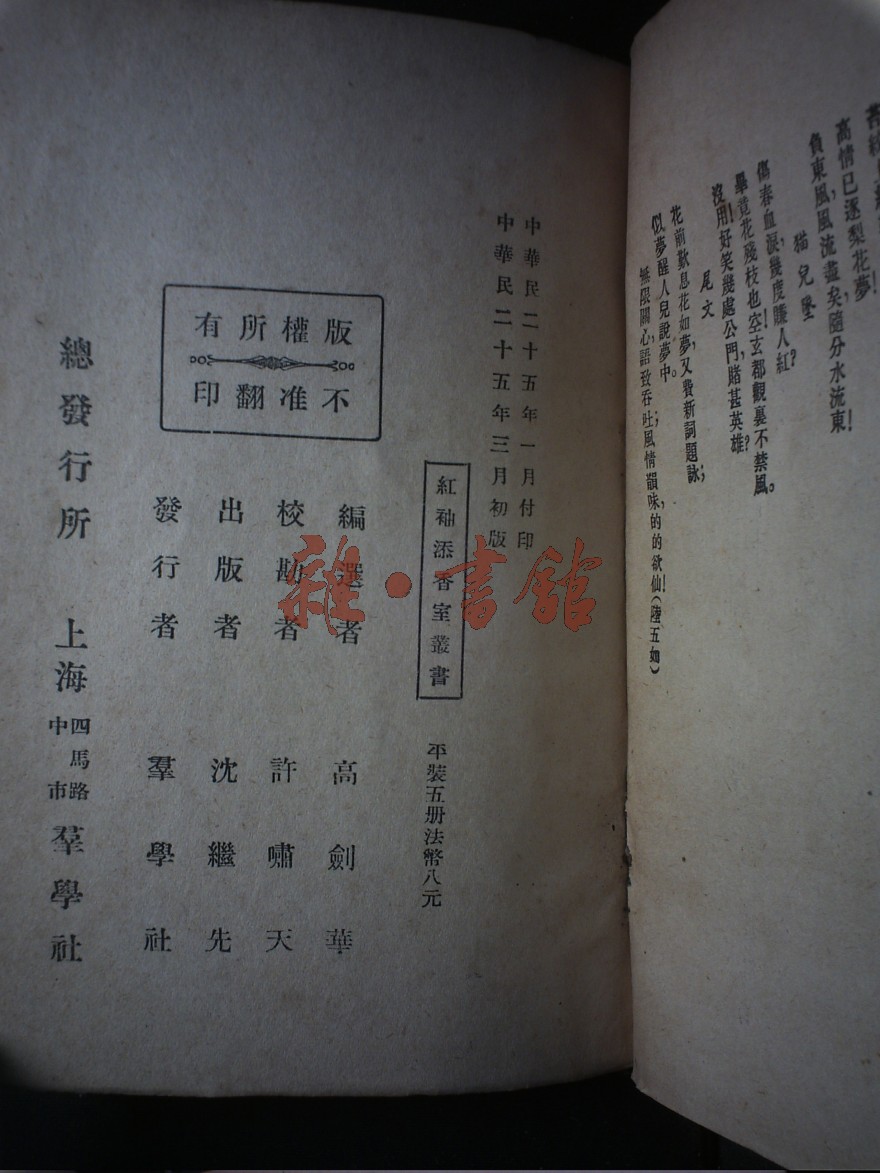 高情已逐梨花夢！
負東風，風流盡矣，隨分水流東！
猫兒墜
傷春血淚，幾度賺人紅？
畢竟花殘枝也空！玄都觀裏不禁風。
沒用！好笑幾處公門，賭甚英雄？
尾文
花前歎息花如夢，又費新詞題詠；
似夢醒人兒說夢中。
無限關心，語致吞吐；風情韻味，的的欲仙！（陸五如）
中華民二十五年一月付印
中華民二十五年三月初版
紅袖添香室叢書
平裝五册法幣八元
版權所有
不准翻印
編選者 高劍華
校勘者 許嘯天
出版者 沈繼先
發行者 羣學社
總發行所 上海四馬路中市 羣學社
雜·書館